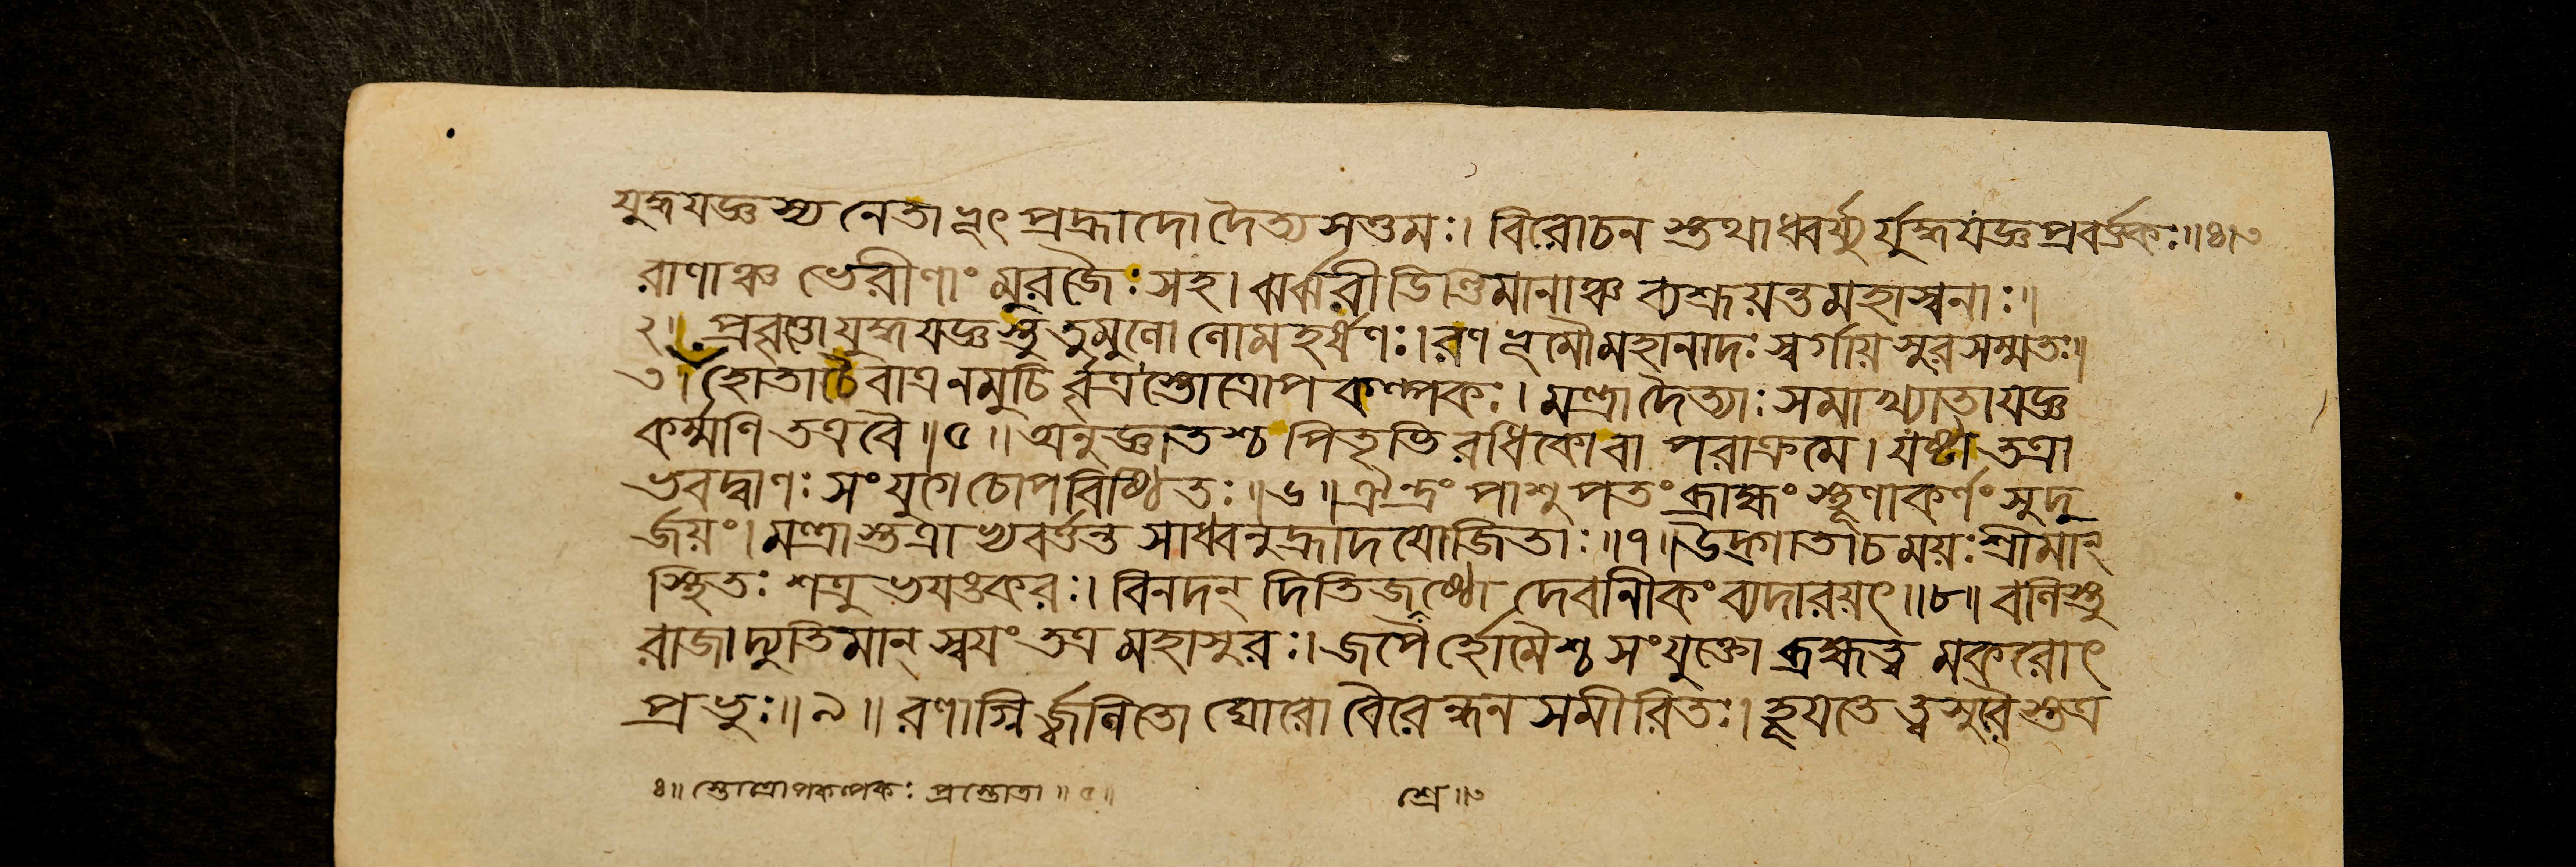 যুদ্ধযজ্ঞস্য নেতাভূৎ প্রহ্রাদো দৈত্যসত্তমঃ। বিরোচনস্তথাধ্বর্য্যুর্যুদ্ধযজ্ঞপ্রবর্ত্তকঃ॥৪॥৩
রাণাঞ্চ ভেরীণাং মুরজৈঃ সহ। ঝর্ঝরীডিণ্ডিমানাঞ্চ ব্যশ্রূয়ন্ত মহাস্বনাঃ॥
২॥ প্রবৃত্তো যুদ্ধযজ্ঞস্তু তুমুলো লোমহর্ষণঃ। রণভূমৌ মহানাদঃ স্বর্গায় সুরসম্মতঃ॥
৩। হোতা চৈবাত্র নমুচি র্বৃত্রস্তোত্রোপকল্পকঃ। মন্ত্রা দৈত্যাঃ সমাখ্যাতা যজ্ঞ
কর্ম্মণি তত্র বৈ॥৫॥ অনুজ্ঞাতশ্চ পিতৃভিরধিকো বা পরাক্রমে। যষ্টা তত্রা
ভবদ্বাণঃ সংযুগে চোপবিষ্ঠিতঃ॥৬॥ ঐন্দ্রং পাশুপতং ব্রাহ্মং স্থূণাকর্ণং সুদু
র্জয়ং। মন্ত্রাস্তত্রাখ্যবর্ত্তন্ত সাধ্বনুহ্রাদযোজিতাঃ॥৭॥ উদ্গাতা চ ময়ঃ শ্রীমান্
স্থিতঃ শত্রুভযঙ্করঃ। বিনদন্ দিতিজশ্রেষ্ঠো দেবানীকং ব্যদারয়ৎ॥৮॥ বলিস্তু
রাজা দ্যুতিমান্ স্বযং তত্র মহাসুরঃ। জপৈর্হোমৈশ্চ সংযুক্তো ব্রহ্মত্বমকরোৎ
প্রভুঃ॥৯॥ রণাগ্নির্জ্বলিতো ঘোরো বৈরেন্ধনসমীরিতঃ। হূযতে ত্বসুরৈস্তত্র
৪॥ স্তোত্রোপকল্পকঃ প্রস্তোতা॥৫॥